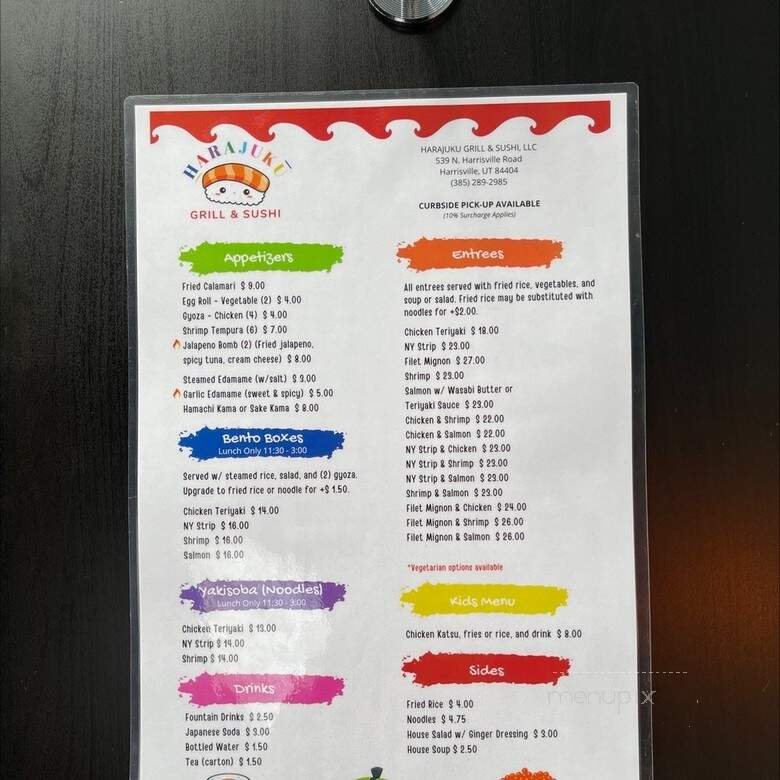 HARAJUKU
GRILL & SUSHI
HARAJUKU GRILL & SUSHI, LLC
539 N. Harrisville Road
Harrisville, UT 84404
(385) 289-2985
CURBSIDE PICK-UP AVAILABLE
(10% Surcharge Applies)
Appetizers
Fried Calamari $ 9.00
Egg Roll - Vegetable (2) $ 4.00
Gyoza - Chicken (4) $ 4.00
Shrimp Tempura (6) $ 7.00
Jalapeno Bomb (2) (Fried jalapeno,
spicy tuna, cream cheese) $ 8.00
Steamed Edamame (w/salt) $ 3.00
Garlic Edamame (sweet & spicy) $ 5.00
Hamachi Kama or Sake Kama $ 8.00
Bento Boxes
Lunch Only 11:30 - 3:00
Served w/ steamed rice, salad, and (2) gyoza.
Upgrade to fried rice or noodle for +$ 1.50.
Chicken Teriyaki $ 14.00
NY Strip $ 16.00
Shrimp $ 16.00
Salmon $ 16.00
Yakisoba (Noodles)
Lunch Only 11:30 - 3:00
Chicken Teriyaki $ 13.00
NY Strip $ 14.00
Shrimp $ 14.00
Drinks
Fountain Drinks $ 2.50
Japanese Soda $ 3.00
Bottled Water $ 1.50
Tea (carton) $ 1.50
Entrees
All entrees served with fried rice, vegetables, and
soup or salad. Fried rice may be substituted with
noodles for +$2.00.
Chicken Teriyaki $ 18.00
NY Strip $ 23.00
Filet Mignon $ 27.00
Shrimp $ 23.00
Salmon w/ Wasabi Butter or
Teriyaki Sauce $ 23.00
Chicken & Shrimp $ 22.00
Chicken & Salmon $ 22.00
NY Strip & Chicken $ 23.00
NY Strip & Shrimp $ 23.00
NY Strip & Salmon $ 23.00
Shrimp & Salmon $ 23.00
Filet Mignon & Chicken $ 24.00
Filet Mignon & Shrimp $ 26.00
Filet Mignon & Salmon $ 26.00
*Vegetarian options available
Kids Menu
Chicken Katsu, fries or rice, and drink $ 8.00
Sides
Fried Rice $ 4.00
Noodles $ 4.75
House Salad w/ Ginger Dressing $ 3.00
House Soup $ 2.50
menupix